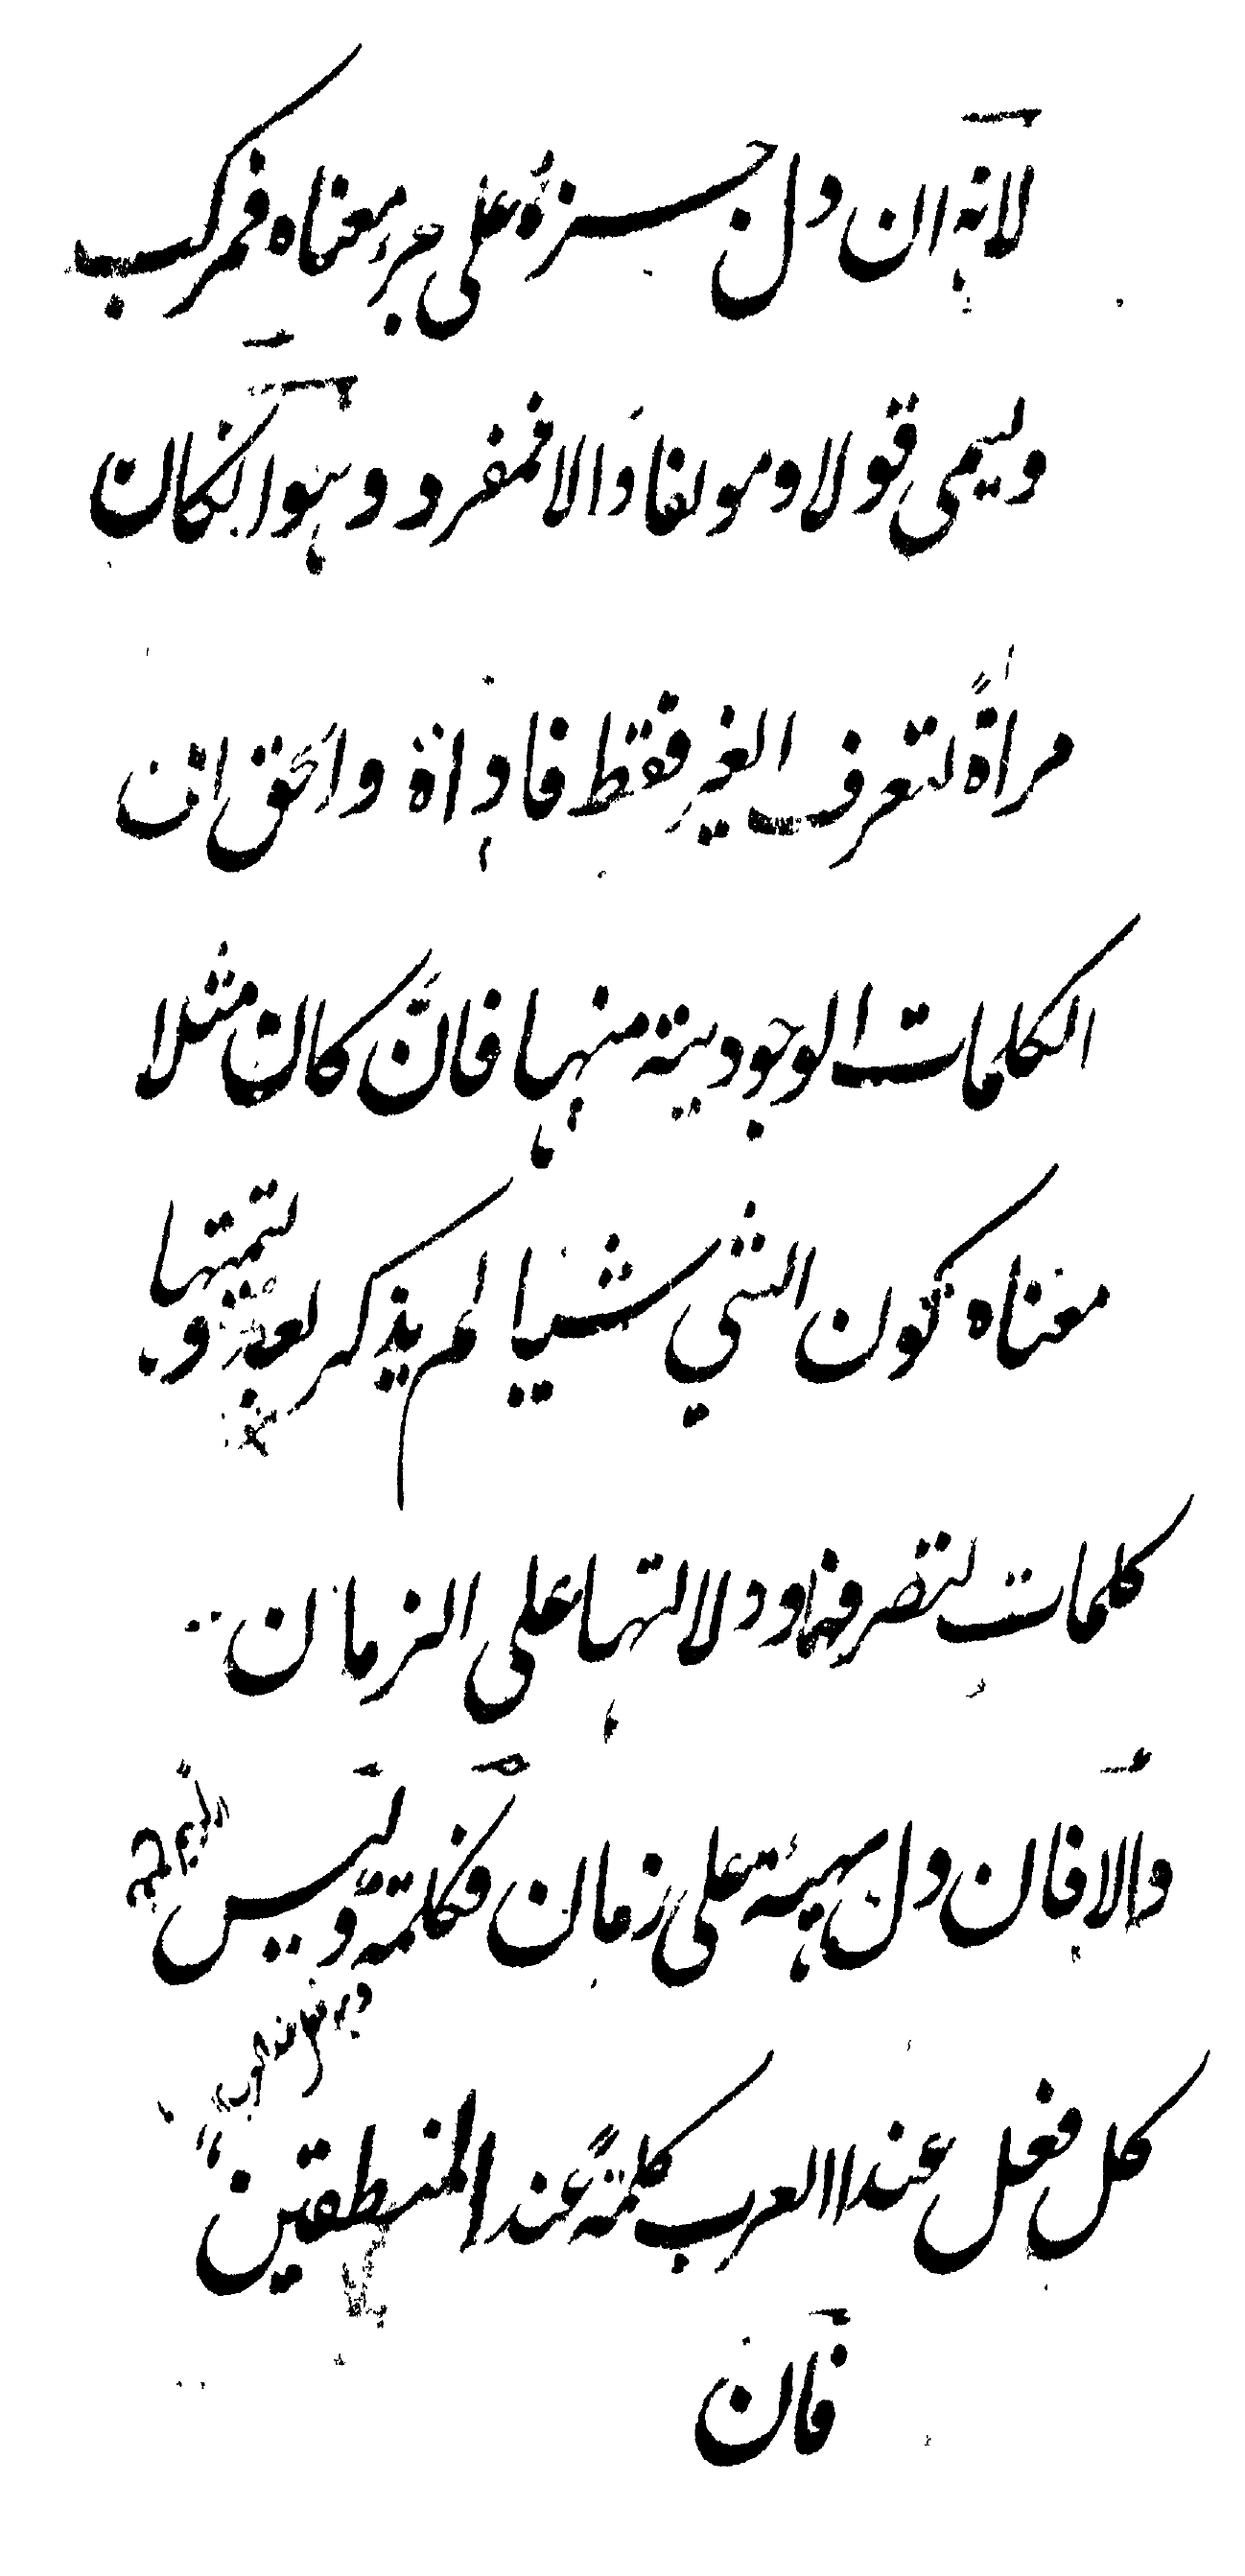 لانه ان دل جزؤه على جزء معناه فمركب
ويسمى قولا ومولفا والا فمفرد وهو انكان
مراةً لتعرف الغير فقط فاداة والحق ان
الكلمات الوجودية منها فانّ كان مثلا
معناه كون الشي شيئا لم يذكر بعد وتسميتها
كلمات لتصرفها ودلالتها على الزمان
والا فان دل بهيئة على زمان فكلمة وليس
كل فعل عند العرب كلمةً عند المنطقين
فان